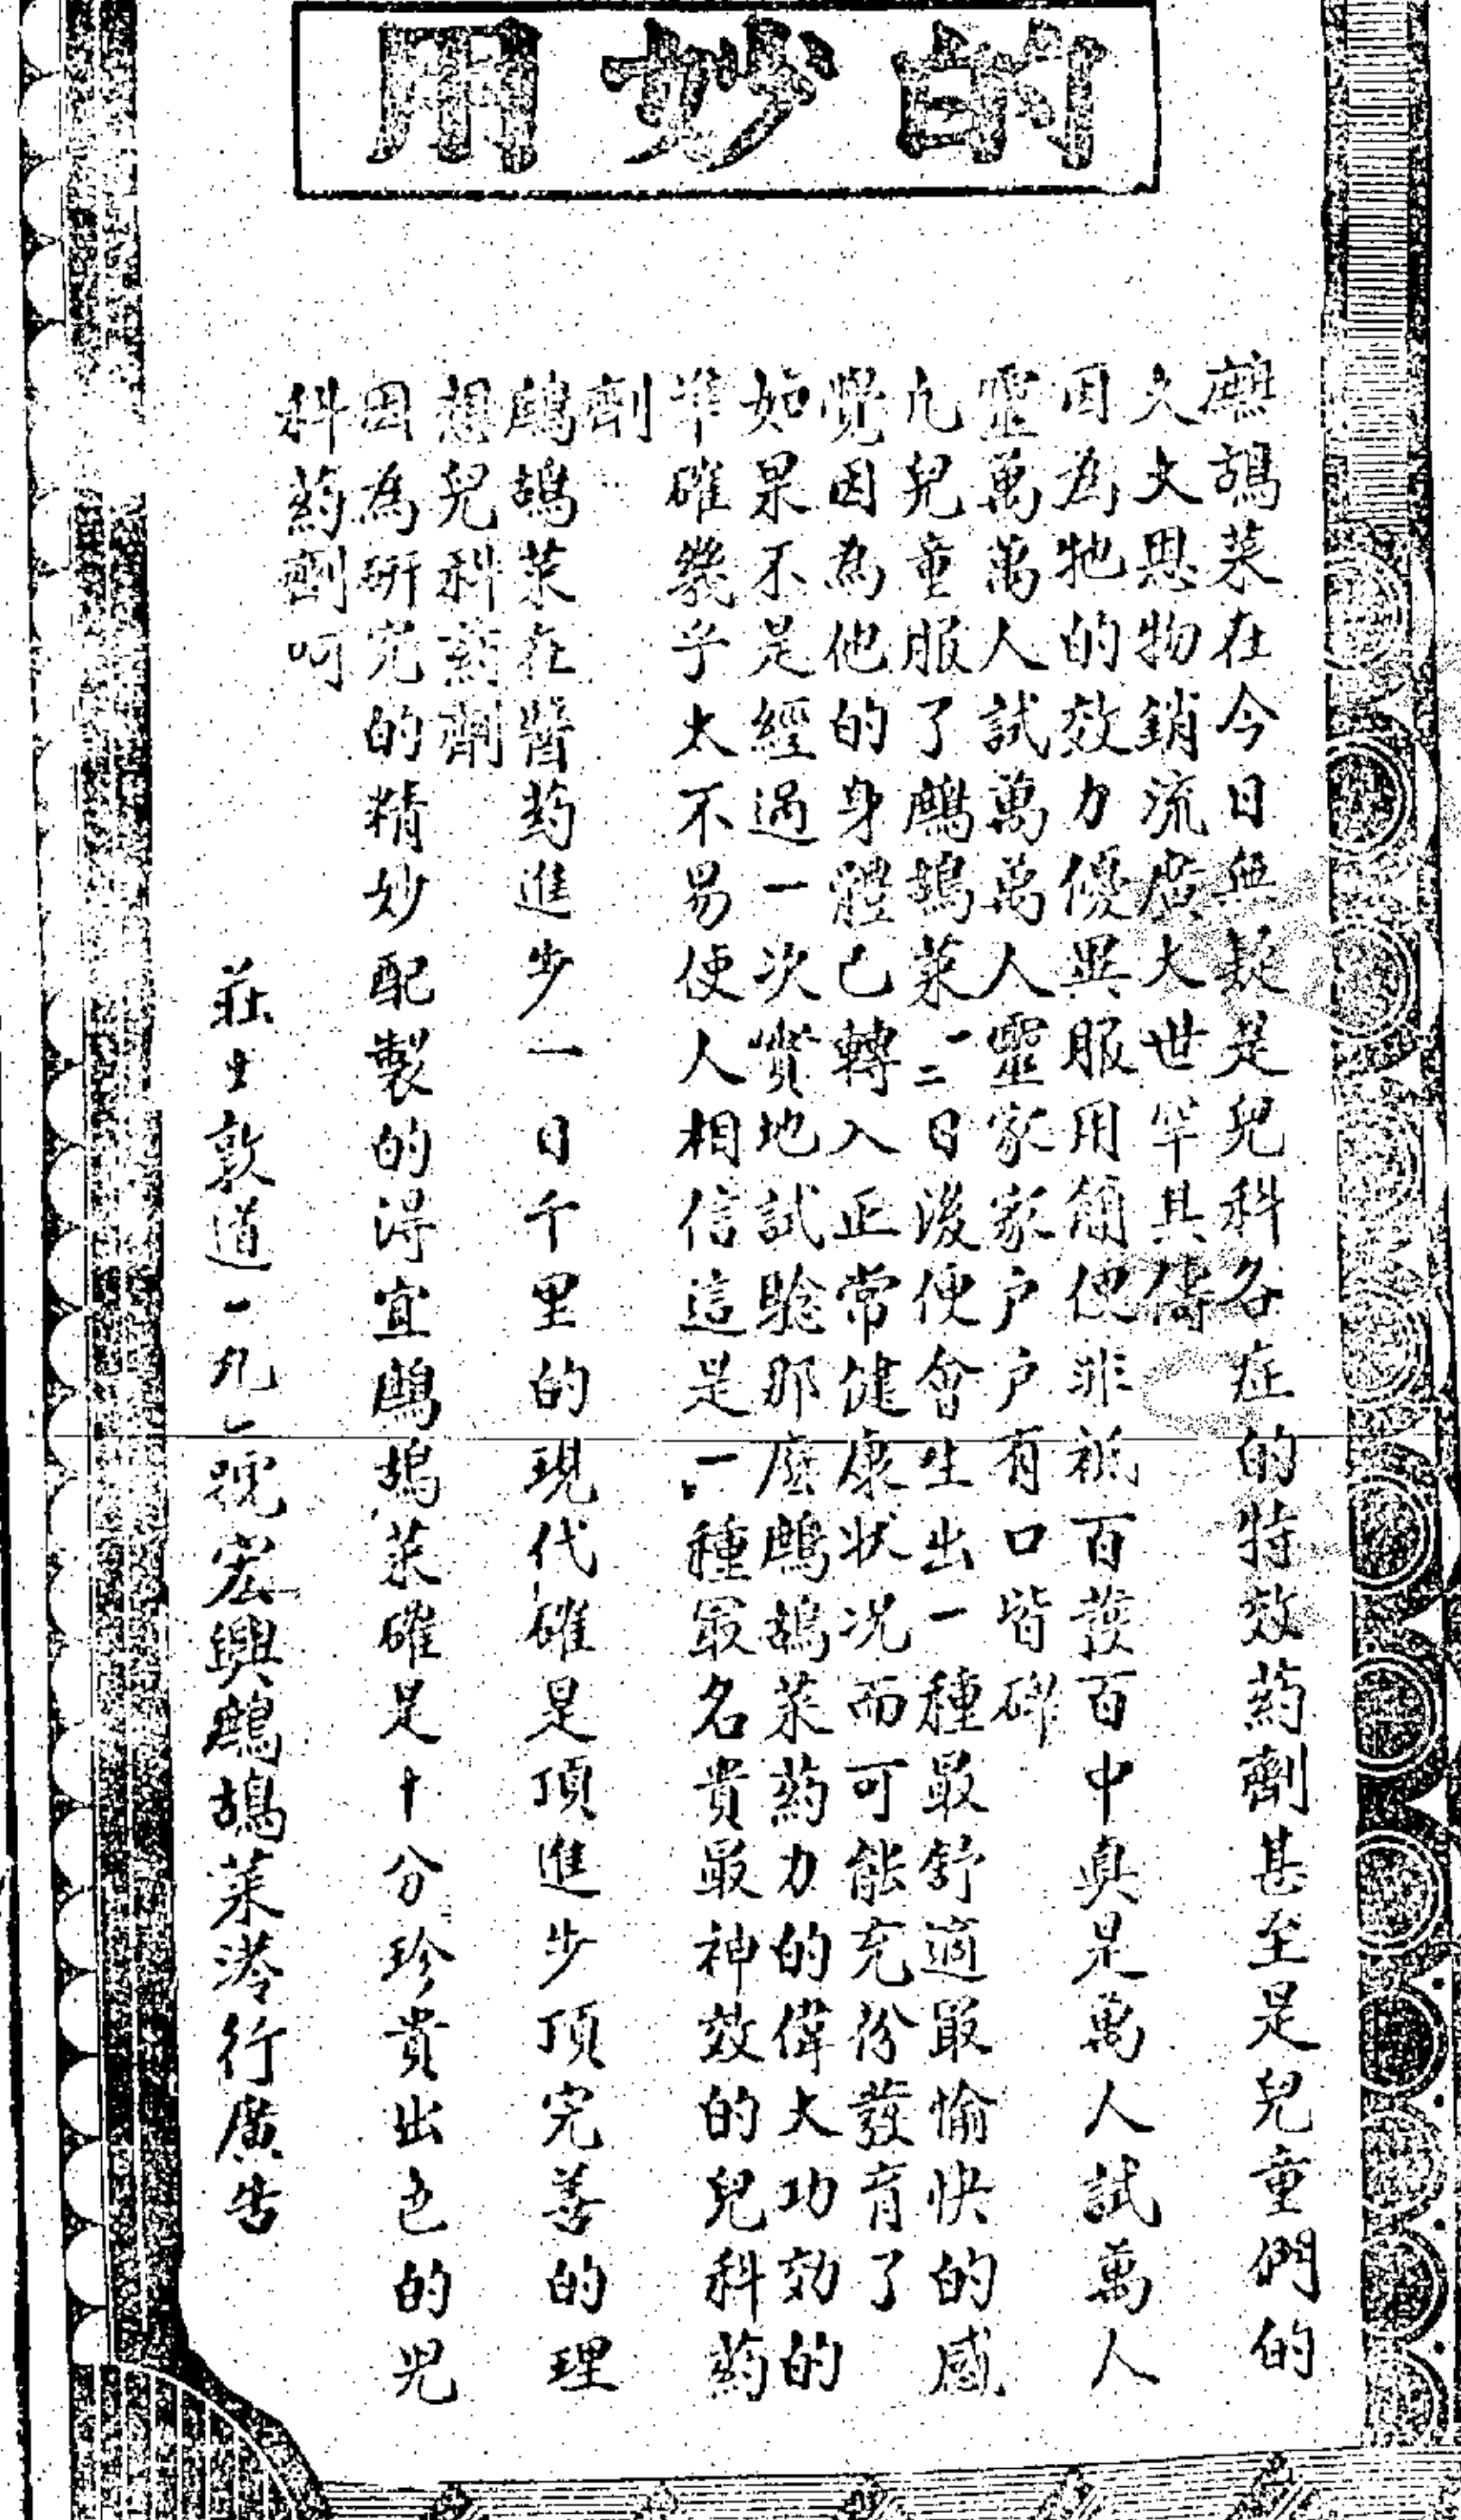 的妙用
鷓鴣菜在今日無疑是兒科各症的特效葯劑甚至是兒童們的
大恩物銷流廣大世罕其儔
因為牠的效力優異服用簡便非祇百發百中真是萬人試萬人
靈萬萬人試萬萬人靈家家户户有口皆碑
凡兒童服了鷓鴣菜一二日後便會生出一種最舒適最愉快的感
覺因為他的身體已轉入正常健康状况而可能充份發育了
如果不是經過一次實地試驗那麼鷓鴣菜葯力的偉大功効的
準確幾乎太不易使人相信這是一種最名貴最神效的兒科葯
劑
鷓鴣菜在醫葯進步一日千里的現代確是頂進步頂完善的理
想兒科葯劑
因為研究的精妙配製的淂宜鷓鴣菜確是十分珍貴出色的兒
科葯劑呵
莊士敦道一九七號宏興鷓鴣菜港行廣告